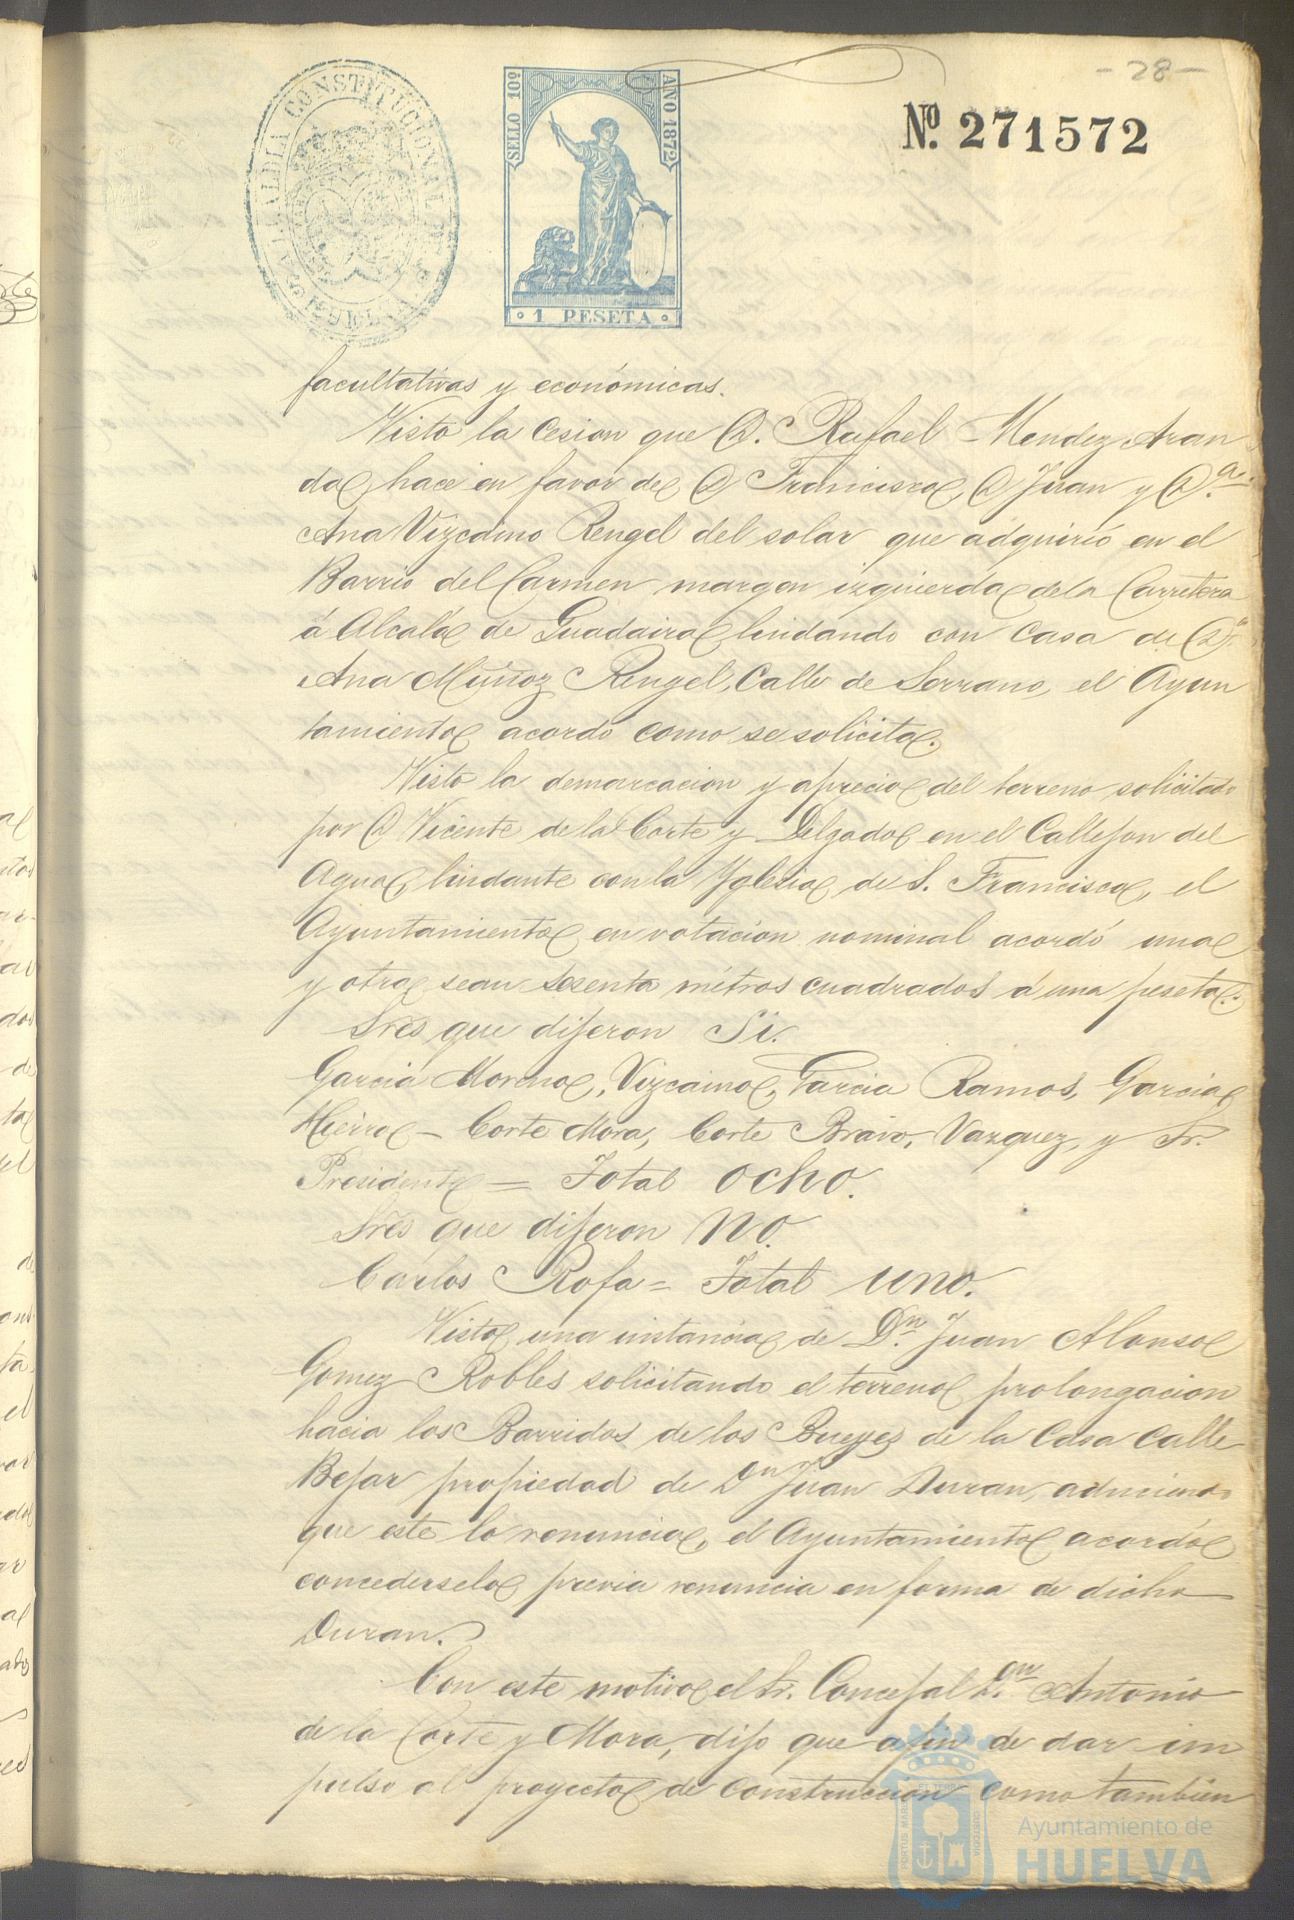 - 28 -
ALCALDIA CONSTITUCIONAL DE HUELVA
SELLO 10º
AÑO 1872
1 PESETA
Nº. 271572
facultativas y económicas.
Visto la Cesion que D. Rafael Mendez Aran
da hace en favor de D Francisco, D Juan y D.ª
Ana Vizcaino Rengel del solar que adquirió en el
Barrio del Carmen margen izquierda de la Carretera
á Alcalá de Guadaira lindando con Casa de D.ª
Ana Muñoz Rengel, Calle de Serrano, el Ayun
tamiento acordó como se solicita.
Visto la demarcacion y aprecio del terreno solicitado
por D Vicente de la Corte y Delgado en el Callejon del
Agua, lindante con la Yglesia de S. Francisco, el
Ayuntamiento en votacion nominal acordó una
y otra sean Sesenta métros cuadrados á una peseta.
Sres que dijeron Si.
Garcia Moreno, Vizcaino, Garcia Ramos, Garcia
Hierro - Corte Mora, Corte Bravo, Vazquez, y Sr.
Presidente = Total ocho.
Sres que dijeron No.
Carlos Rofa = Total uno.
Visto una instancia de Dn. Juan Alonso
Gomez Robles solicitando el terreno prolongacion
hacia los Barridos de los Bueyes de la Casa calle
Bejar propiedad de Dn Juan Duran, aduciendo
que este lo renuncia, el Ayuntamiento acordó
concederselo previa renuncia en forma de dicho
Duran.
Con este motivo el Sr. Concejal D.n Antonio
de la Corte y Mora, dijo que afin de dar im
pulso al proyecto de construccion como tambien
PORTUS MARIS ET TERRÆ CUSTODIA
Ayuntamiento de
HUELVA